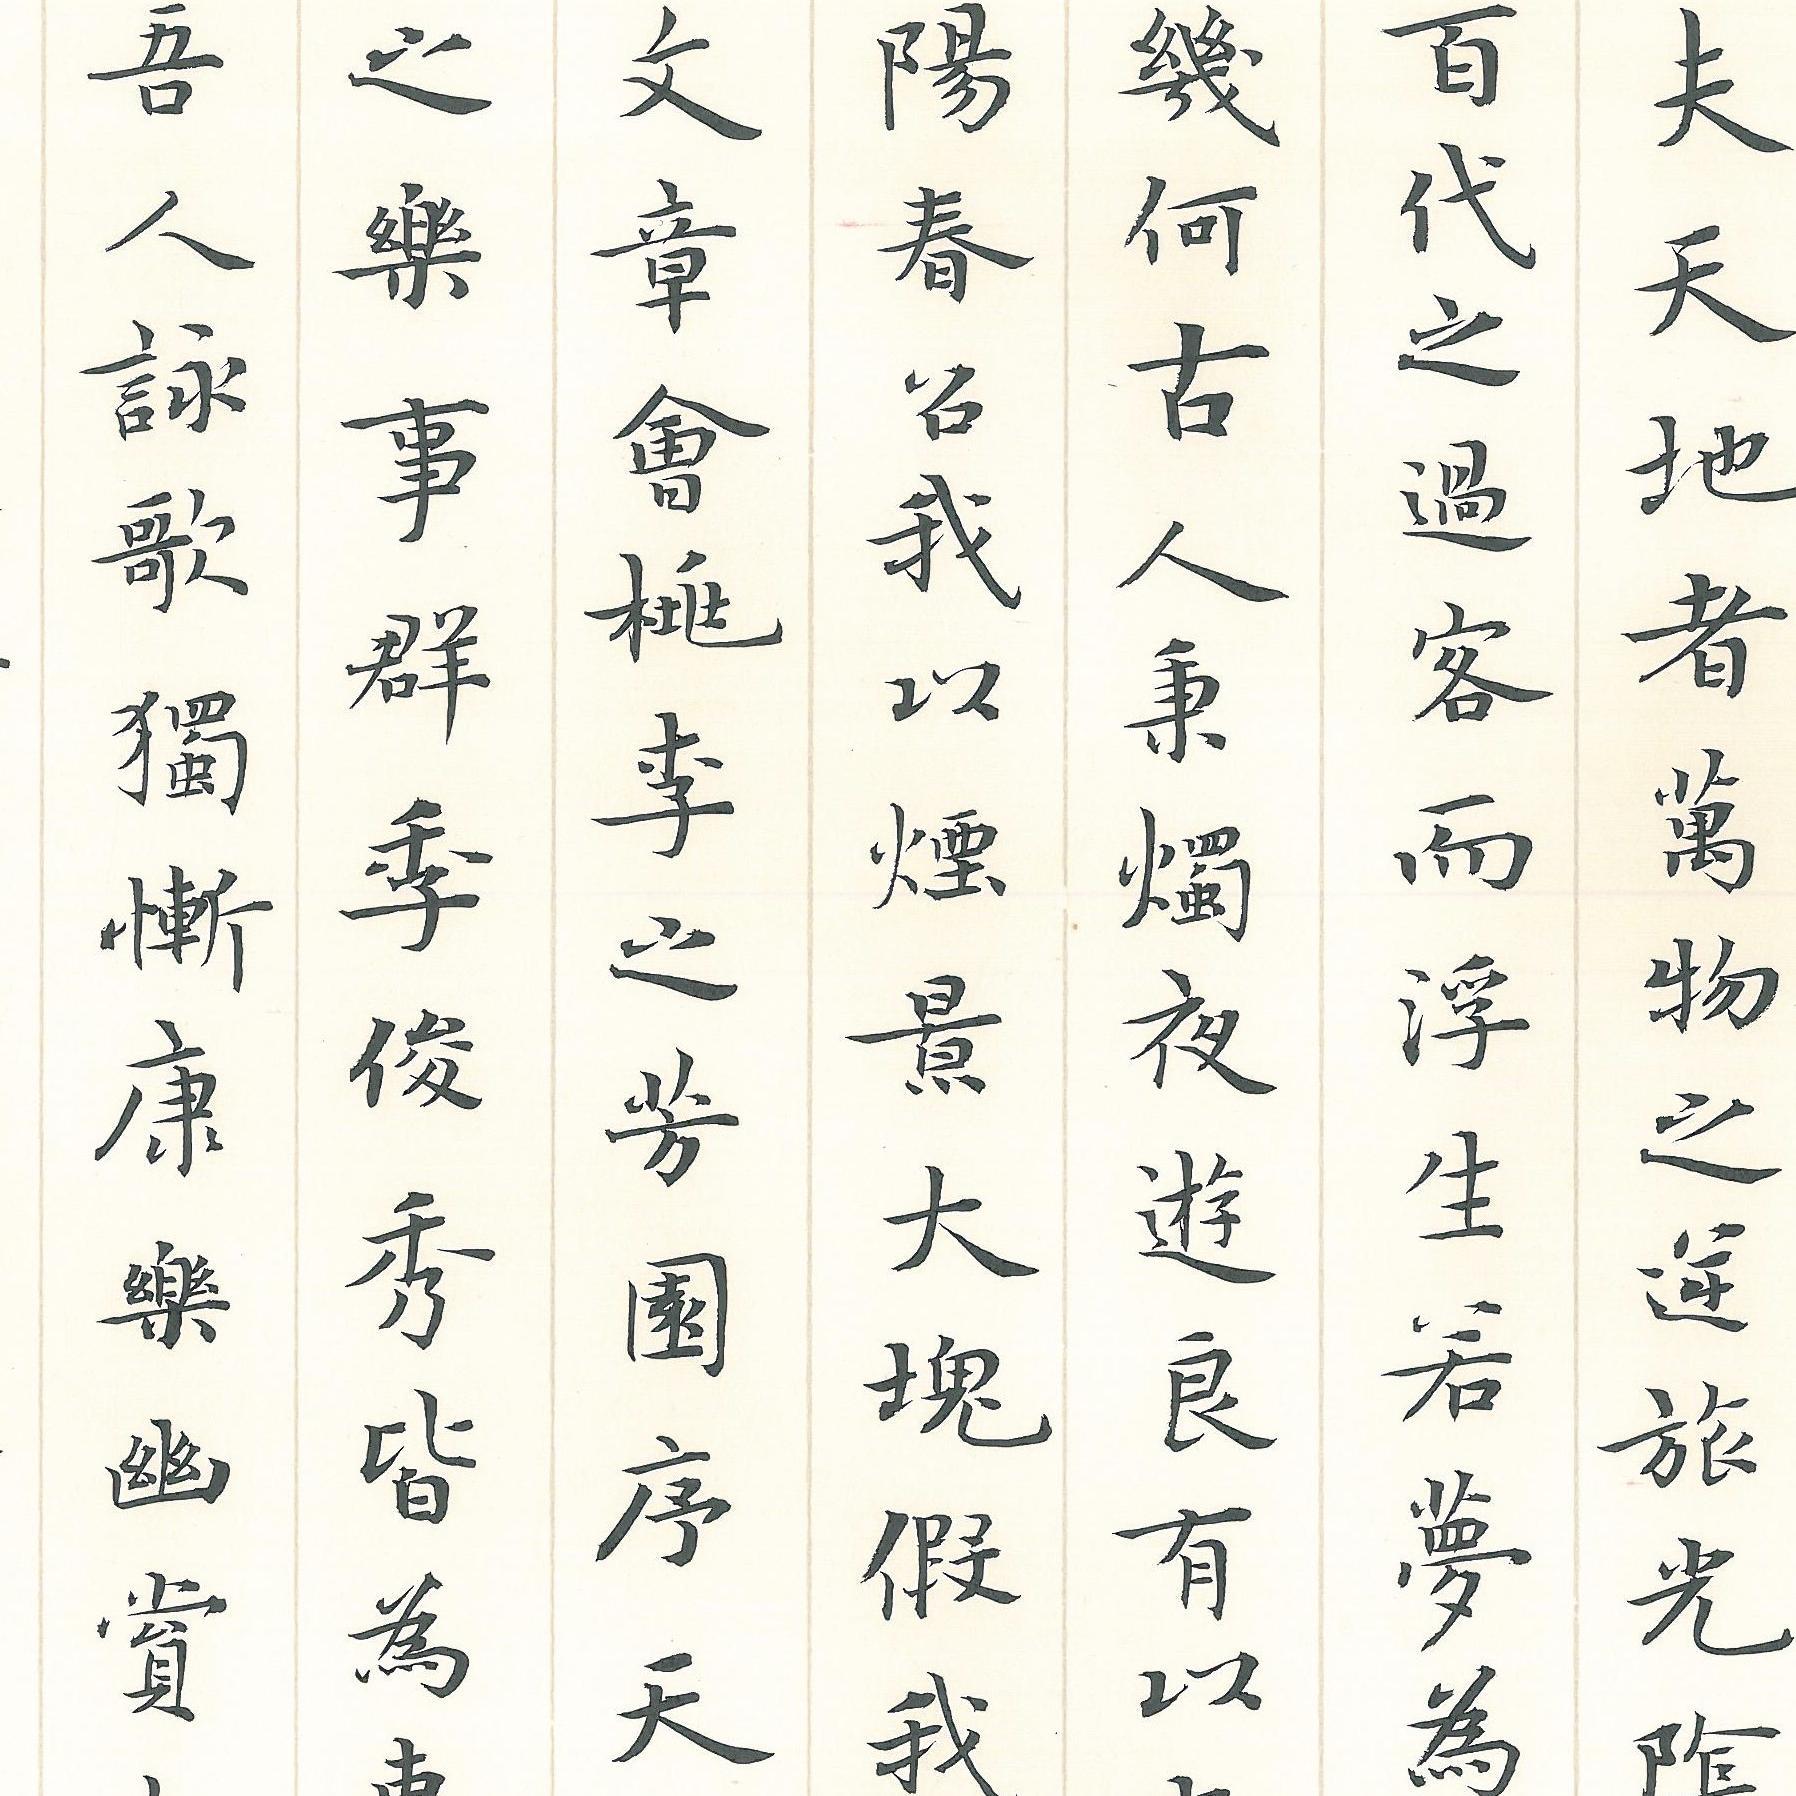 夫天地者萬物之逆旅光陰
百代之過客而浮生若夢為
幾何古人秉燭夜遊良有以
陽春召我以煙景大塊假我
文章會桃李之芳園序天
之樂事群季俊秀皆為惠
吾人詠歌獨慚康樂幽賞